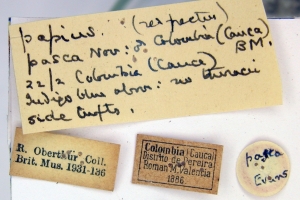 papius. (respectus)
pasca Nov: ♂ Colombia (Cauca)
BM.
22/2 Colombia (Cauca)
blue above: no thoracic
side tufts.
R. Oberthur Coll.
Brit. Mus. 1931-136
Colombia (Cauca)
Distrito de Pereira
Roman M. Valentia
1886
pasca
Evans